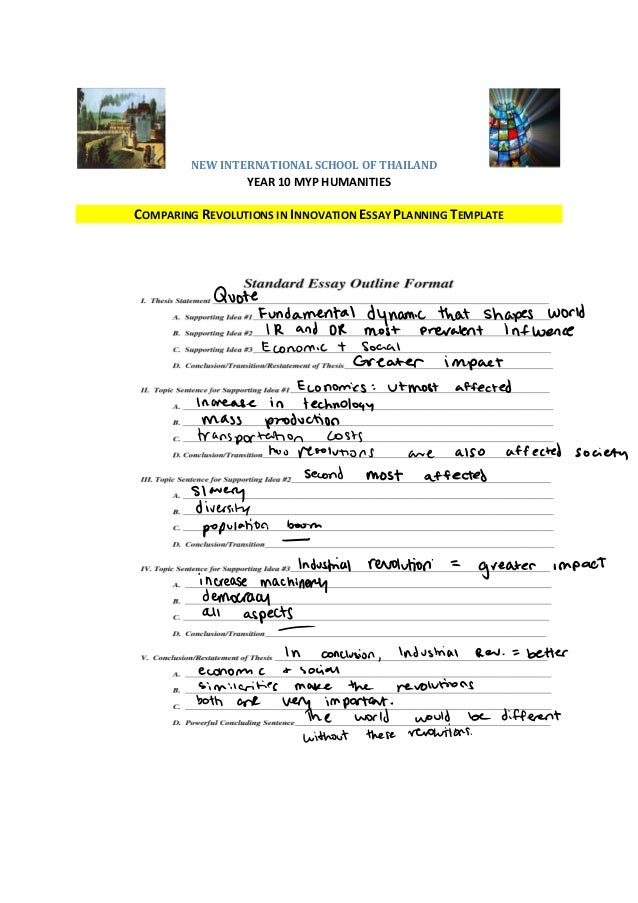 NEW INTERNATIONAL SCHOOL OF THAILAND
YEAR 10 MYP HUMANITIES
COMPARING REVOLUTIONS IN INNOVATION ESSAY PLANNING TEMPLATE
Standard Essay Outline Format
I. Thesis Statement Quote
A. Supporting Idea #1 Fundamental dynamic that shapes world
B. Supporting Idea #2 IR and DR most prevalent Influence
C. Supporting Idea #3 Economic + Social
D. Conclusion/Transition/Restatement of Thesis Greater impact
II. Topic Sentence for Supporting Idea #1 Economics: utmost affected
A. Increase in technology
B. mass production
C. transportation costs
D. Conclusion/Transition two revolutions are also affected society
III. Topic Sentence for Supporting Idea #2 Second most affected
A. Slavery
B. diversity
C. population boom
D. Conclusion/Transition —
IV. Topic Sentence for Supporting Idea #3 Industrial revolution = greater impact
A. increase machinery
B. democracy
C. all aspects
D. Conclusion/Transition —
V. Conclusion/Restatement of Thesis In conclusion, Industrial Rev. = better
A. economic + social
B. similarities make the revolutions
C. both are very important.
D. Powerful Concluding Sentence The world would be different
without these revolutions.